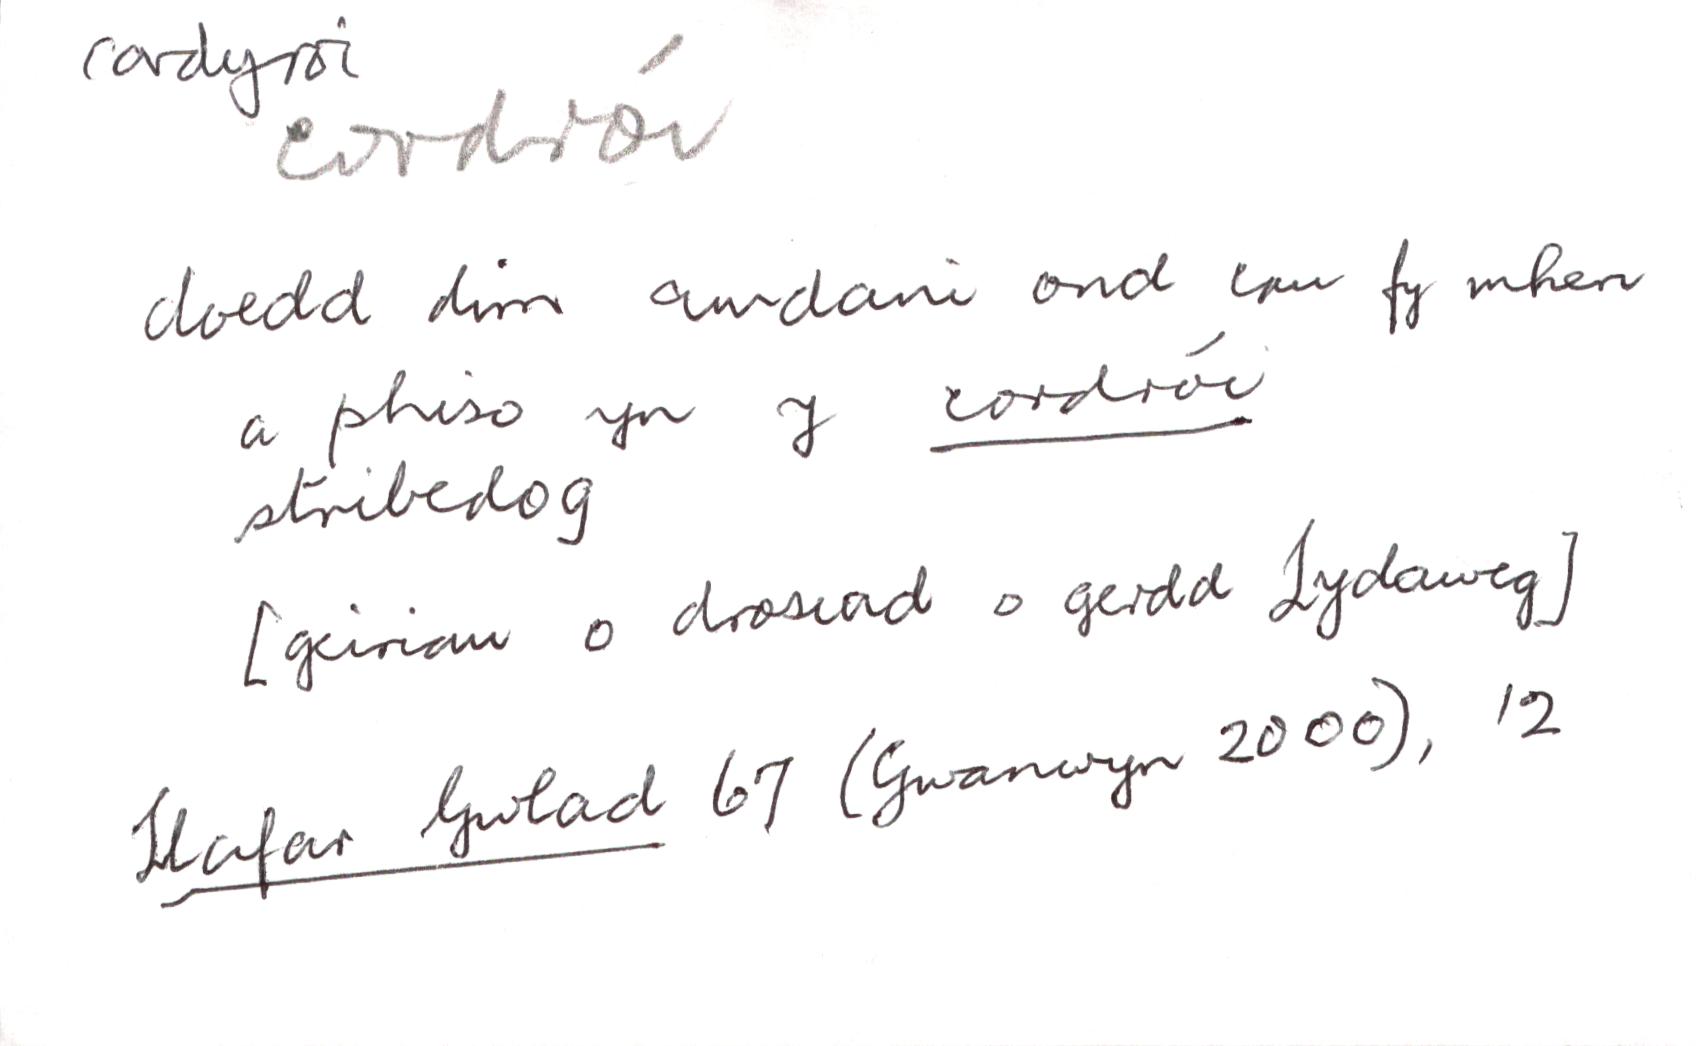 cordyroi
cordrói
doedd dim amdani ond cau fy mhen
a phiso yn y cordrói
stribedog
[geiriau o drosiad o gerdd Lydaweg]
Llafar Gwlad 67 (Gwanwyn 2000), 12